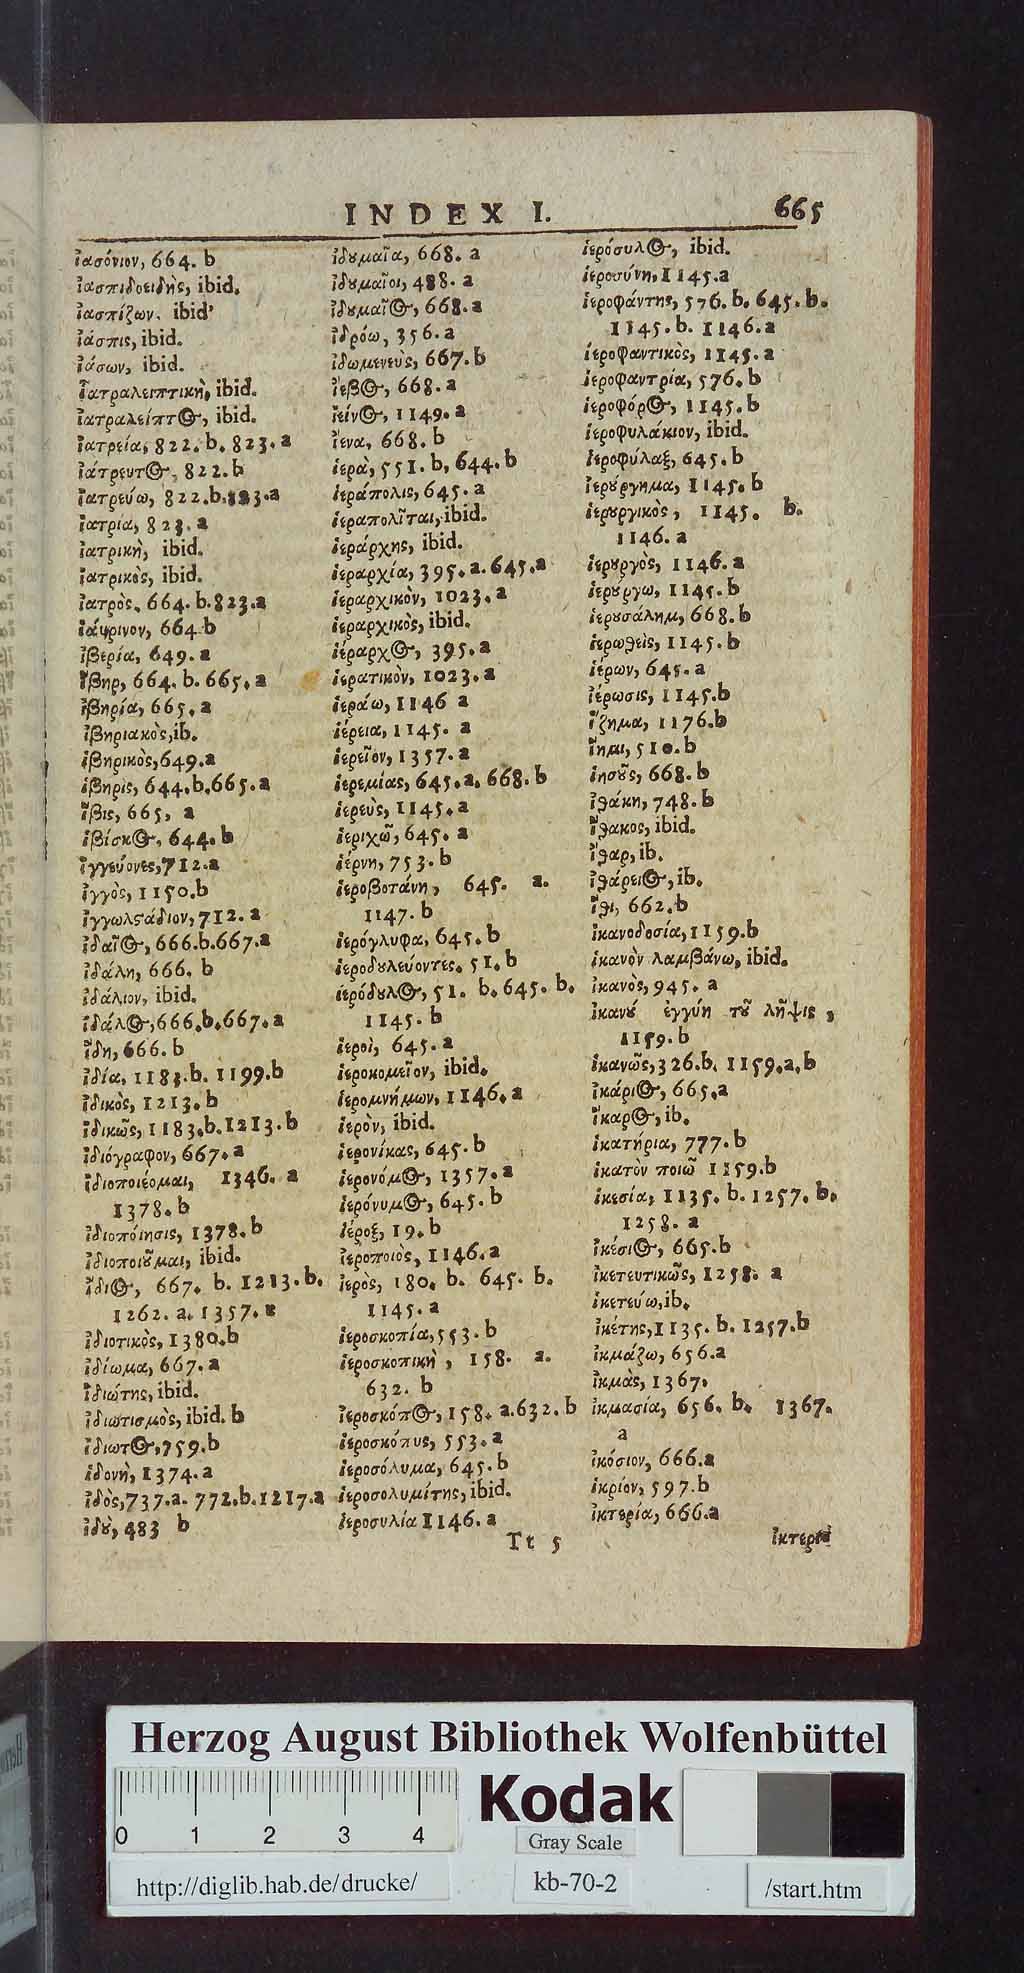 INDEX I. 665
ἰασόνιον, 664. b
ἰασπιδοειδὴς, ibid.
ἰασπίζων. ibid
ἰάσπις, ibid.
ἰάσων, ibid.
ἰατραλειπτικὴ, ibid.
ἰατραλείπτος, ibid.
ἰατρεία, 822. b. 823. a
ἰάτρευτος, 822. b
ἰατρεύω, 822. b. 823. a
ἰατρία, 823. a
ἰατρικὴ, ibid.
ἰατρικὸς, ibid.
ἰατρὸς, 664. b. 823. a
ἰάψρινον, 664 b
ἰβερία, 649. a
ἴβηρ, 664. b. 665. a
ἰβηρία, 665. a
ἰβηριακὸς, ib.
ἰβηρικὸς, 649. a
ἰβηρὶς, 644. b. 665. a
ἴβις, 665, a
ἰβίσκος, 644. b
ἰγγεύονες, 712. a
ἰγγὸς, 1150. b
ἰγγωλστάδιον, 712. a
ἰδαῖος, 666. b. 667. a
ἰδάλη, 666. b
ἰδάλιον, ibid.
ἰδάλος, 666. b. 667. a
ἴδη, 666. b
ἰδία, 1183. b. 1199. b
ἰδικὸς, 1213. b
ἰδικῶς, 1183. b. 1213. b
ἰδιόγραφον, 667. a
ἰδιοποιέομαι, 1346. a
1378. b
ἰδιοπόιησις, 1378. b
ἰδιοποιοῦμαι, ibid.
ἴδιος, 667. b. 1213. b.
1262. a. 1357.
ἰδιοτικὸς, 1380. b
ἰδίωμα, 667. a
ἰδιώτης, ibid.
ἰδιωτισμὸς, ibid. b
ἰδιωτος, 759. b
ἰδονὴ, 1374. a
ἰδὸς, 737. a. 772. b. 1217. a
ἰδοὺ, 483 b
ἰδουμαῖα, 668. a
ἰδουμαῖοι, 488. a
ἰδουμαῖος, 668. a
ἰδρόω, 356. a
ἰδωμενεὺς, 667. b
ἴεβος, 668. a
ἰείνος, 1149. a
ἴενα, 668. b
ἱερὰ, 551. b, 644. b
ἱεράπολις, 645. a
ἱεραπολῖται, ibid.
ἱεράρχης, ibid.
ἱεραρχία, 395. a. 645. a
ἱεραρχικὸν, 1023. a
ἱεραρχικὸς, ibid.
ἱέραρχος, 395. a
ἱερατικὸν, 1023. a
ἱεράω, 1146 a
ἱέρεια, 1145. a
ἱερεῖον, 1357. a
ἱερεμίας, 645. a. 668. b
ἱερεὺς, 1145. a
ἱεριχῶ, 645. a
ἱέρνη, 753. b
ἱεροβοτάνη, 645. a.
1147. b
ἱερόγλυφα, 645. b
ἱεροδουλεύοντες, 51. b
ἱερόδουλος, 51. b. 645. b.
1145. b
ἱεροὶ, 645. a
ἱεροκομεῖον, ibid.
ἱερομνήμων, 1146. a
ἱερὸν, ibid.
ἱερονίκας, 645. b
ἱερονόμος, 1357. a
ἱερόνυμος, 645. b
ἱέροξ, 19. b
ἱεροποιὸς, 1146. a
ἱερὸς, 180. b. 645. b.
1145. a
ἱεροσκοπία, 553. b
ἱεροσκοπικὴ, 158. a.
632. b
ἱεροσκόπος, 158. a. 632. b
ἱεροσκόπους, 553. a
ἱεροσόλυμα, 645. b
ἱεροσολυμίτης, ibid.
ἱεροσυλία 1146. a
ἱερόσυλος, ibid.
ἱεροσύνη, 1145. a
ἱεροφάντης, 576. b. 645. b.
1145. b. 1146. a
ἱεροφαντικὸς, 1145. a
ἱεροφαντρία, 576. b
ἱεροφόρος, 1145. b
ἱεροφυλάκιον, ibid.
ἱεροφύλαξ, 645. b
ἱερούργημα, 1145. b
ἱερουργικὸς, 1145. b.
1146. a
ἱερουργὸς, 1146. a
ἱερουργω, 1145. b
ἱερουσάλημ, 668. b
ἱερωθεὶς, 1145. b
ἱέρων, 645. a
ἱέρωσις, 1145. b
ἵζημα, 1176. b
ἵημι, 510. b
ἰησοῦς, 668. b
ἰθάκη, 748. b
ἴθακος, ibid.
ἴθαρ, ib.
ἰθάρειος, ib.
ἴθι, 662. b
ἱκανοδοσία, 1159. b
ἱκανὸν λαμβάνω, ibid.
ἱκανὸς, 945. a
ἱκανοῦ ἐγγύη τοῦ λῆψις,
1159. b
ἱκανῶς, 326. b. 1159. a, b
ἰκάριος, 665. a
ἴκαρος, ib.
ἱκατήρια, 777. b
ἱκατὸν ποιῶ 1159. b
ἱκεσία, 1135. b. 1257. b.
1258. a
ἱκέσιος, 665. b
ἱκετευτικῶς, 1258. a
ἱκετεύω, ib.
ἱκέτης, 1135. b. 1257. b
ἰκμάζω, 656. a
ἰκμὰς, 1367.
ἰκμασία, 656. b. 1367.
a
ἰκόσιον, 666. a
ἰκρίον, 597. b
ἰκτερία, 666. a
Tt 5
Herzog August Bibliothek Wolfenbüttel
0 1 2 3 4
Kodak
Gray Scale
http://diglib.hab.de/drucke/
kb-70-2
/start.htm